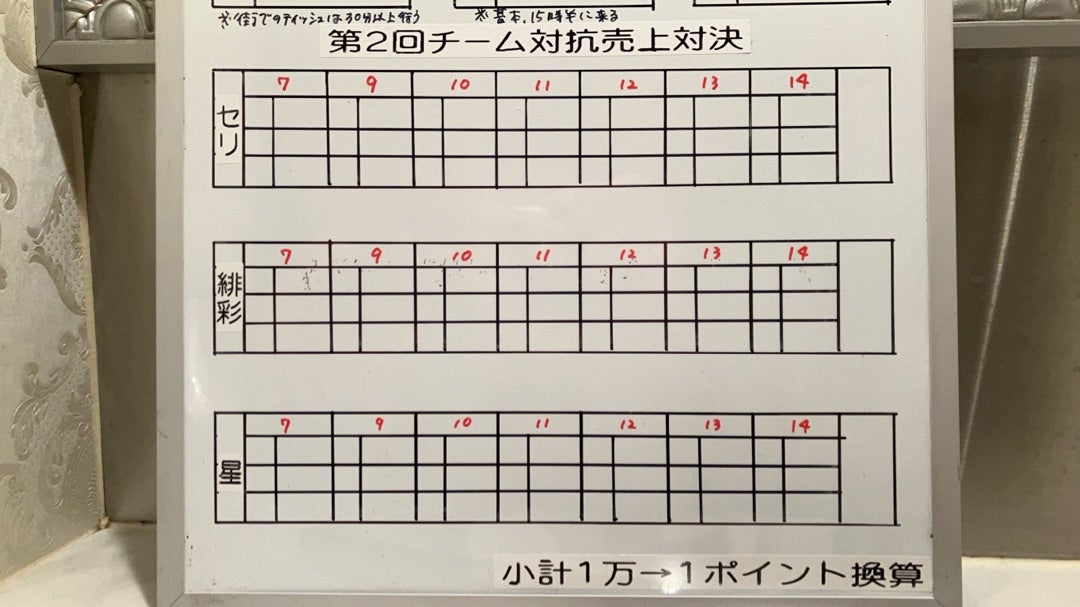 ※街でのティッシュは30分以上行う
※基本、15時半に来る
第2回チーム対抗売上対決
セリ
7 9 10 11 12 13 14
緋彩
7 9 10 11 12 13 14
星
7 9 10 11 12 13 14
小計1万→1ポイント換算